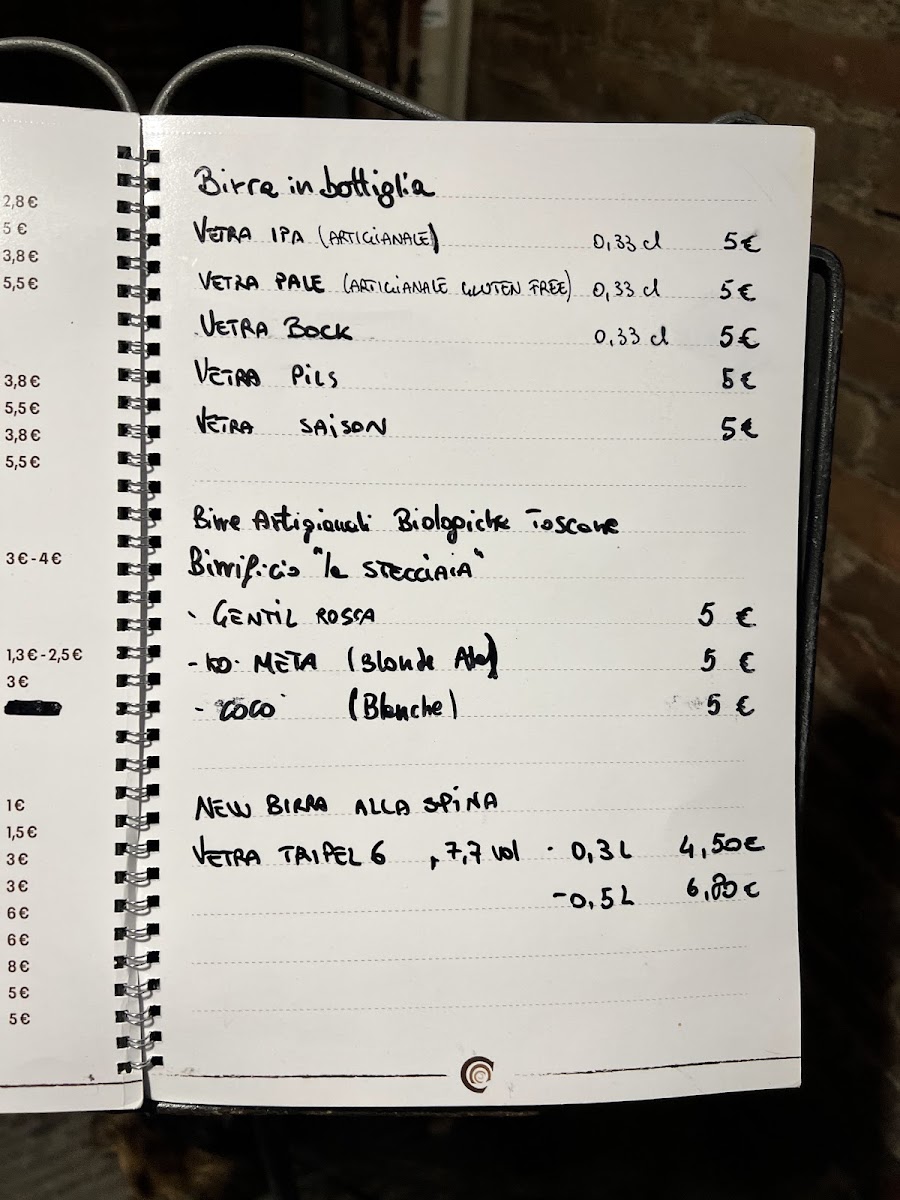 2,8 €
5 €
3,8 €
5,5 €
3,8 €
5,5 €
3,8 €
5,5 €
3 € - 4 €
1,3 € - 2,5 €
3 €
1 €
1,5 €
3 €
3 €
6 €
6 €
8 €
5 €
5 €
Birra in bottiglia
VETRA IPA (ARTIGIANALE) 0,33 cl 5€
VETRA PALE (ARTIGIANALE GLUTEN FREE) 0,33 cl 5€
VETRA BOCK 0,33 cl 5€
VETRA PiLS 5€
VETRA SAiSON 5€
Birre Artigianali Biologiche Toscane
Birrificio "la STECCIAIA"
- GENTIL ROSSA 5 €
- KO· META (Blonde Ale) 5 €
- COCO (Blanche) 5 €
NEW BIRRA ALLA SPINA
VETRA TRIPEL 6 , 7,7 vol - 0,3 L 4,50€
- 0,5 L €